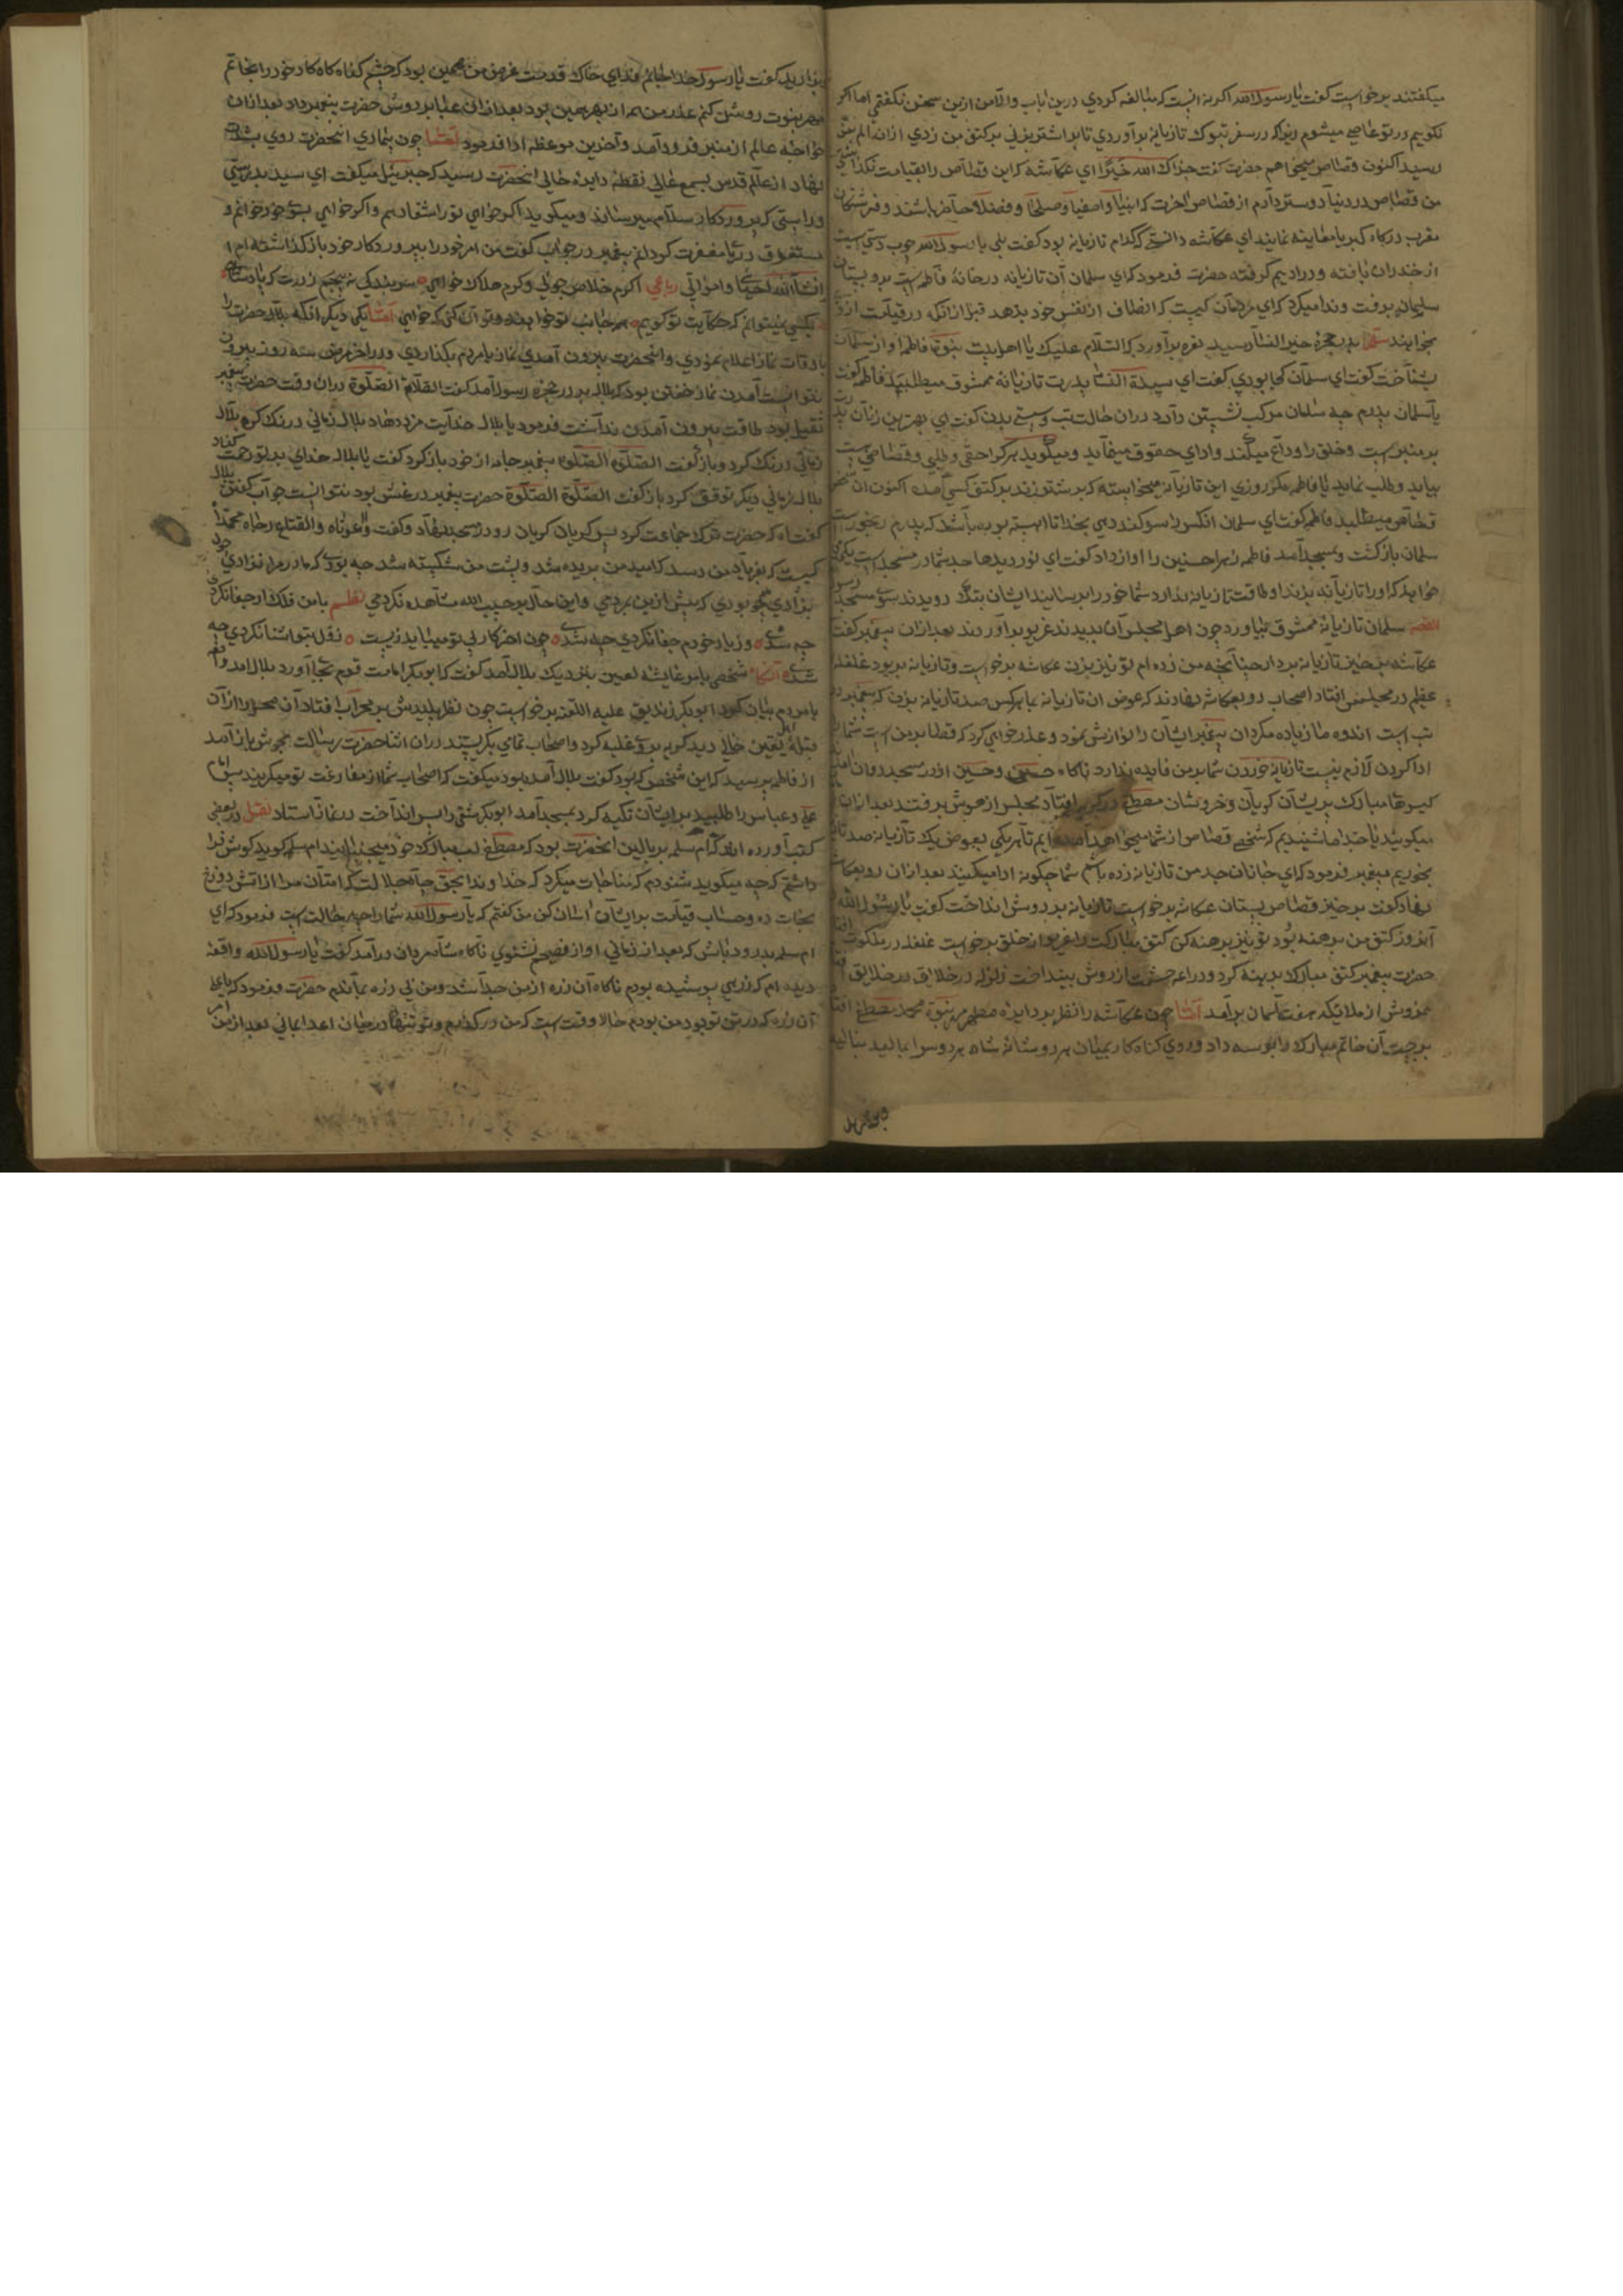 میکفتند برخواست کفت یارسول الله اکر نه انست که مبالغه کردی درین باب والا من ازین سخن نکفتمی اما اکر
نکویم در تو عاصی میشوم زیرا که در سفر تبوک تازیانه برآوردی تا بر اشتر بزنی برکتف من زدی ازان الم
رسید اکنون قصاص میخواهم حضرت کفت جزاک الله خیرا ای عکاشه که این قصاص را بقیامت نکذاشتی
من قصاص در دنیا دوستر دارم از قصاص اخرت که انبیا و اصفیا و صلحا و فضلا حاضر باشند و فرشتکان
مقرب درکاه کبریا معاینه نمایند ای عکاشه دانستی که کدام تازیانه بود کفت بلی یا رسول الله چوب دستی است
از خیزران بافته و در ادیم کرفته حضرت فرمود که ای سلمان آن تازیانه در خانه فاطمه است برو بستان
سلیمان برفت و ندا میکرد که ای مردمان کیست که انصاف از نفس خود بدهد قبل ازانکه در قیامت ازو
بخواهند بدر حجره خیر النسا رسید نعره برآورد که السلام علیک یا اهل بیت نبوت فاطمه اواز سلمان
بشناخت کفت ای سلمان کجا بودی کفت ای سیدة النسا پدرت تازیانه ممشوق میطلبد فاطمه کفت
یا سلمان پدرم چه سلمان مرکب نشستن دارد دران حالت تب و سستی بدن کفت ای بهترین زنان
بر منبر است و خلق را وداع میکند و ادای حقوق مینماید و میکوید هر کرا حقی و طلبی و قصاصی هست
بیاید و طلب نماید یا فاطمه مکر روزی این تازیانه میخواسته که بر شتر زند برکتف کسی آمده اکنون ان شخص
قصاص میطلبد فاطمه کفت ای سلمان انکس را سوکند دهی بخدا تا اهسته بوده باشد که پدرم رنجور است
سلمان بازکشت و بمسجد آمد فاطمه زهرا حسنین را اواز داد کفت ای نور دیدها جد شما در مسجد است یکی
خواهد که او را تازیانه بزند او طاقت تازیانه ندارد شما خود را برسانید ایشان بتک دویدند سوی مسجد رسول
القصه سلمان تازیانه ممشوق بیاورد چون اهل مجلس آن بدیدند غریو برآوردند بعد ازان پیغمبر کفت
عکاشه برخیز تازیانه بردار چنانچه من زده ام تو نیز بزن عکاشه برخواست و تازیانه بربود غلغله
عظیم در مجلس افتاد اصحاب رو بعکاشه نهادند که عوض ان تازیانه بما هرکس صد تازیانه بزن که پیغمبر در
تب است اندوه ما زیاده مکردان پیغمبر ایشان را نوازش نمود و عذر خواهی کرد که قضا برمن است شما را
ادا کردن لازم نیست تازیانه خوردن شما برمن فایده ندارد ناکاه حسن و حسین از در مسجد روان
کیسوها مبارک پریشان کریان و خروشان مصطفی در کریه افتاد مجلس از هوش برفتند بعد ازان
میکویند یا جدا ما شنیدیم که شخصی قصاص از شما میخواهد آمده ایم تا هر یکی بعوض یک تازیانه صد تازیانه
بخوریم پیغمبر فرمود که ای جانان جد من تازیانه زده باشم شما چکونه ادا میکنید بعد ازان رو بعکاشه
نهاد کفت برخیز قصاص بستان عکاشه برخواست تازیانه بر دوش انداخت کفت یا رسول الله
آنروز کتف من برهنه بود تو نیز برهنه کن کتف مبارکت را غریو از خلق برخواست غلغله در ملکوت افتاد
حضرت پیغمبر کتف مبارک برهنه کرد و دراعه از دوش بینداخت زلزله در خلایق
خروش از ملائیکه هفت آسمان برآمد چون عکاشه را نظر بر دایره مطهر مهر نبوة محمد مصطفی
برجست آن خاتم مبارک را بوسه داد و روی کناه کار بمیان هر دو شانه شاه هر دو سرا بمالید
کفت یا رسول خدا جانم فدای خاک قدمت غرض من همین بود که چشم کناه کار خود را بخاتم
مهر نبوت روشن کنم عذر من همه از بهر همین بود بعد ازان عبا بر دوش حضرت پیغمبر داد بعد ازان
خواجه عالم از منبر فرود آمد و آخرین موعظه ادا فرمود چون بیماری انحضرت روی بشدت
نهاد از عالم قدس بسمع عالی نقطه دایره انحضرت رسید که جبرئیل میکفت ای سید بدرستی
و راستی که پروردکار سلام میرساند و میکوید اکر خواهی ترا شفا دهم و اکر خواهی بسوی خود خوانم و
مستغرق دریا مغفرت کردانم پیغمبر در جواب کفت من امر خود را بپروردکار خود باز کذاشته ام
انشاالله احیای واموالی رباعی اکرم خلاص جوئی و کرم هلاک خواهی سر بندکی نپیچم ز درت که پادشاهی
بکسی نمیتوانم که حکایت تو کویم همه جانب تو خواهند و تو آن کنی که خواهی یکی دیکر انکه بلال حضرت را
باوقات نماز اعلام نمودی و انحضرت بیرون آمدی نماز بامردم بکذاردی و در اخر مرض سه روز بیرون
نتوانست آمدن نماز خفتن بود که بلال بدر حجره رسول آمد کفت الصلوة الصلوة دران وقت حضرت پیغمبر
ثقیل بود طاقت بیرون آمدن نداشت فرمود یا بلال خدایت مزد دهاد بلال زمانی درنک کرد بلال
زمانی درنک کرد و باز کفت الصلوة الصلوة پیغمبر جامه از خود باز کرد کفت یا بلال خدای بر تو رحمت کناد
بلال زمانی دیکر توقف کرد باز کفت الصلوة الصلوة حضرت پیغمبر در غش بود نتوانست جواب کفتن بلال
کفت اه که حضرت ترک جماعت کرد پس کریان کریان رو در مسجد نهاد و کفت واغوثاه وانقطاع رجاه محمدا
کیست که بفریاد من رسد که امید من بریده شد و پشت من شکسته شد چه بودی که مادر مرا نزادی
بزادی چه بودی که پیش ازین بمردمی و این حال بر حبیب الله مشاهده نکردمی نظم بامن فلک ار جفا نکردی
چه شدی وز یار خودم جدا نکردی چه شدی چون اخر کار بی تو میباید زیست ز اول بتو اشنا نکردی چه
شدی شخصی بامر عایشه لعین بنزدیک بلال آمد کفت که ابوبکر امامت قوم بجا آورد بلال آمد و
بامردم بیان کرد ابوبکر زندیق علیه اللعنه برخواست چون نظر پلیدش بر محراب افتاد آن محل را از آن
قبله اهل یقین خالی دید کریه بروی غلبه کرد و اصحاب تمامی بکریستند دران اثنا حضرت رسالت بهوش باز آمد
از فاطمه پرسید که این شخص که بود کفت بلال آمده بود میکفت که اصحاب شما از مفارغت تو میکریند پس امام
علی و عباس را طلبید بر ایشان تکیه کرد بمسجد آمد ابوبکر شقی را پس انداخت در نماز استاد نقل در بعضی
کتب آورده اند که ام سلمه بر بالین انحضرت بود که مصطفی لب مبارک خود میجنبانید ام سلمه کوید کوش فرا
داشتم که چه میکوید شنودم که مناجات میکرد که خداوندا بحق جاه جلالت که امتان مرا از اتش دوزخ
نجات ده و حساب قیامت بر ایشان اسان کن من کفتم که یا رسول الله شما را چه حالت است فرمود که ای
ام سلمه بدرود باش که بعد از زمانی اواز فصیحم نشنوی ناکاه شاه مردان درآمد کفت یا رسول الله واقعه
دیده ام که زرهی پوشیده بودم ناکاه آن زره از من جدا شد و من بی زره بماندم حضرت فرمود که یا علی
آن زره که در تن تو بود من بودم حالا وقت است که من درکذرم و تو تنها در میان اعدا بمانی بعد ازین